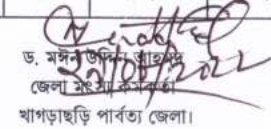 ড. মঈন উদ্দিন আহমদ
২৭/০৬/২০২২
জেলা মৎস্য কর্মকর্তা
খাগড়াছড়ি পার্বত্য জেলা।